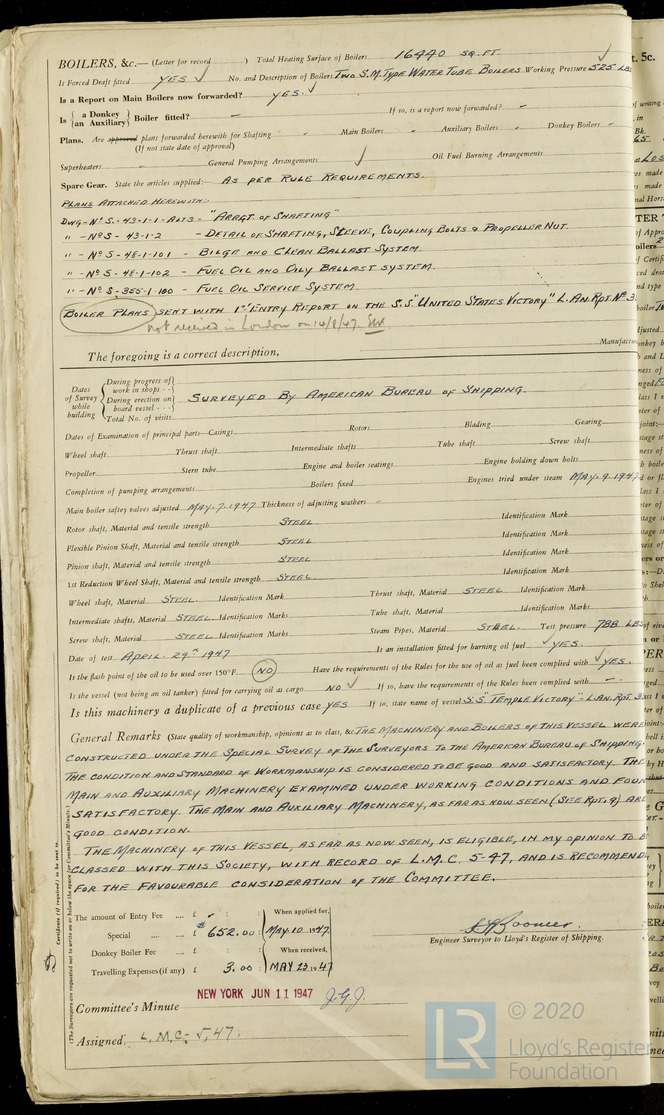 BOILERS, &c.— (Letter for record ) Total Heating Surface of Boilers 16440 SQ.FT.
Is Forced Draft fitted YES ✓ No. and Description of Boilers TWO S.M. TYPE WATER TUBE BOILERS Working Pressure 525 LBS
Is a Report on Main Boilers now forwarded? YES. ✓
Is { a Donkey an Auxiliary } Boiler fitted? — If so, is a report now forwarded? –
Plans. Are approved plans forwarded herewith for Shafting Main Boilers Auxiliary Boilers Donkey Boilers
(If not state date of approval)
Superheaters General Pumping Arrangements ✓ Oil Fuel Burning Arrangements
Spare Gear. State the articles supplied:— AS PER RULE REQUIREMENTS.
PLANS ATTACHED HEREWITH:-
DWG - Nº S-43-1-1-ALT5 - "ARRGT. OF SHAFTING"
" - Nº S - 43-1-2 - DETAIL OF SHAFTING, SLEEVE, COUPLING BOLTS & PROPELLER NUT.
" - Nº S - 48-1-101 - BILGE AND CLEAN BALLAST SYSTEM.
" - Nº S - 48-1-102 - FUEL OIL AND OILY BALLAST SYSTEM.
" - Nº S - 355-1-100 - FUEL OIL SERVICE SYSTEM.
BOILER PLANS SENT WITH 1ST ENTRY REPORT ON THE S.S. "UNITED STATES VICTORY" L.AN. RPT. Nº 3
not received in London on 14/8/47.
Manufactu
The foregoing is a correct description,
Dates of Survey while building { During progress of work in shops - -
During erection on board vessel - - -
Total No. of visits
SURVEYED BY AMERICAN BUREAU OF SHIPPING
Dates of Examination of principal parts—Casings Rotors Blading Gearing
Wheel shaft Thrust shaft Intermediate shafts Tube shaft Screw shaft
Propeller Stern tube Engine and boiler seatings Engine holding down bolts
Completion of pumping arrangements Boilers fixed Engines tried under steam MAY. 9. 1947
Main boiler saftey valves adjusted MAY. 7. 1947 Thickness of adjusting washers –
Rotor shaft, Material and tensile strength STEEL Identification Mark
Flexible Pinion Shaft, Material and tensile strength STEEL Identification Mark
Pinion shaft, Material and tensile strength STEEL Identification Mark
1st Reduction Wheel Shaft, Material and tensile strength STEEL Identification Mark
Wheel shaft, Material STEEL. Identification Mark Thrust shaft, Material STEEL Identification Mark
Intermediate shafts, Material STEEL. Identification Marks Tube shaft, Material Identification Marks
Screw shaft, Material STEEL Identification Marks Steam Pipes, Material STEEL. Test pressure 788 LBS
Date of test APRIL. 29TH 1947 Is an installation fitted for burning oil fuel ✓ YES.
Is the flash point of the oil to be used over 150°F. NO Have the requirements of the Rules for the use of oil as fuel been complied with ✓ YES.
Is the vessel (not being an oil tanker) fitted for carrying oil as cargo NO ✓ If so, have the requirements of the Rules been complied with –
Is this machinery a duplicate of a previous case YES If so, state name of vessel S.S. "TEMPLE VICTORY" - L.AN. RPT. 3
General Remarks (State quality of workmanship, opinions as to class, &c. THE MACHINERY AND BOILERS OF THIS VESSEL WERE
CONSTRUCTED UNDER THE SPECIAL SURVEY OF THE SURVEYORS TO THE AMERICAN BUREAU OF SHIPPING.
THE CONDITION AND STANDARD OF WORKMANSHIP IS CONSIDERED TO BE GOOD AND SATISFACTORY. THE
MAIN AND AUXILIARY MACHINERY EXAMINED UNDER WORKING CONDITIONS AND FOUN
SATISFACTORY. THE MAIN AND AUXILIARY MACHINERY, AS FAR AS NOW SEEN (SEE RPT. 9) ARE
GOOD CONDITION.
THE MACHINERY OF THIS VESSEL, AS FAR AS NOW SEEN, IS ELIGIBLE, IN MY OPINION TO B
CLASSED WITH THIS SOCIETY, WITH RECORD OF L.M.C. 5-47, AND IS RECOMMEND
FOR THE FAVOURABLE CONSIDERATION OF THE COMMITTEE.
Certificate (if required) to be sent to
(The Surveyors are requested not to write on or below the space for Committee's Minute.)
The amount of Entry Fee .... £ – : : When applied for,
Special .... .... £ $652.00 : MAY. 10. 1947.
Donkey Boiler Fee .... £ : : When received,
Travelling Expenses (if any) £ 3.00 : MAY 23. 1947
Engineer Surveyor to Lloyd's Register of Shipping.
NEW YORK JUN 11 1947 J.G.J.
Committee's Minute
Assigned. L.M.C. 5,47.
LR © 2020
Lloyd's Register
Foundation